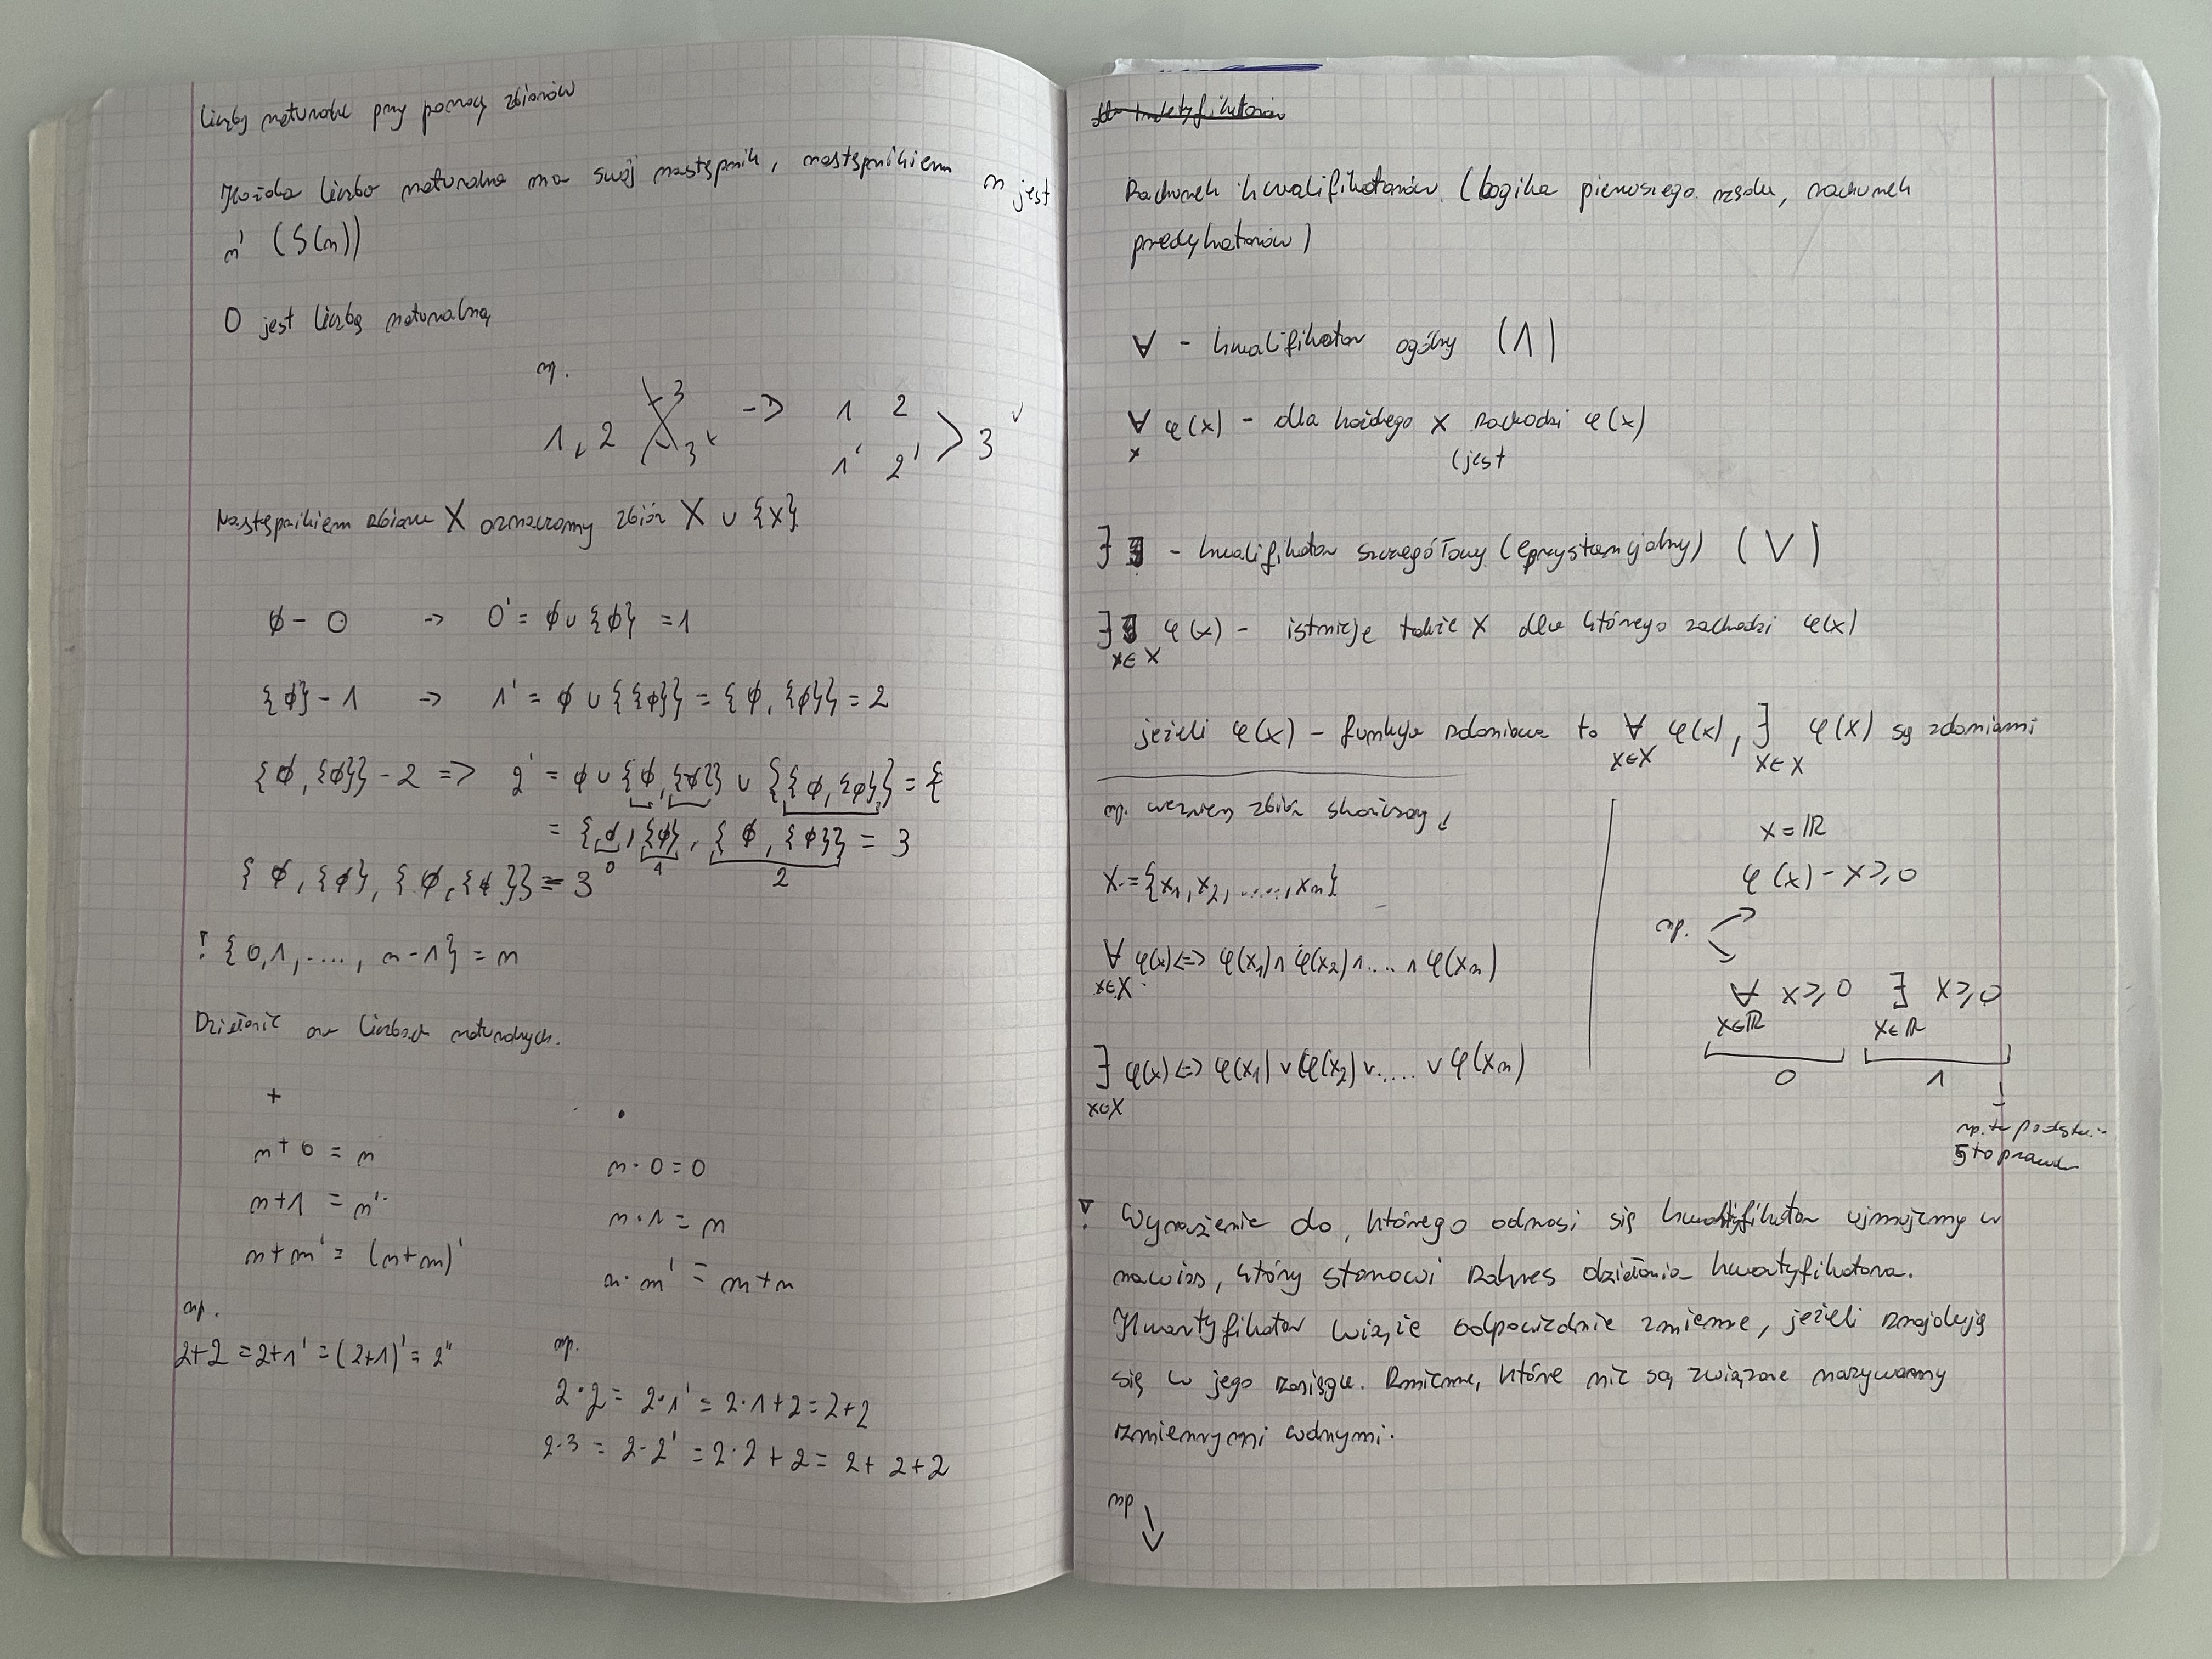 Liczby naturalne przy pomocy zbiorów
Każda liczba naturalna ma swój następnik, następnikiem n jest
n' (S(n))
0 jest liczbą naturalną
np.
1, 2 3 3 -> 1 2 1' 2' > 3
Następnikiem zbioru X oznaczamy zbiór X ∪ {X}
∅ - 0 -> 0' = ∅ ∪ {∅} = 1
{∅} - 1 -> 1' = ∅ ∪ {{∅}} = {∅, {∅}} = 2
{∅, {∅}} - 2 => 2' = ∅ ∪ {∅, {∅}} ∪ {{∅, {∅}} = {
= {∅, {∅}, {∅, {∅}} = 3
0 1 2
{∅, {∅}, {∅, {∅}}} = 3
! {0, 1, ...., n-1} = n
Działanie na liczbach naturalnych.
+ ·
n + 0 = n
n · 0 = 0
n + 1 = n'
n · 1 = n
n + m' = (n+m)'
n · m' = m + n
np.
2+2 = 2+1' = (2+1)' = 2''
np.
2·2 = 2·1' = 2·1+2 = 2+2
2·3 = 2·2' = 2·2+2 = 2+2+2
Rachunek kwalifikatorów (logika pierwszego rzędu, rachunek
predykatorów)
∀ - kwalifikator ogólny (⋀)
∀ φ(x) - dla każdego x zachodzi φ(x)
x (jest
∃ - kwalifikator szczegółowy (egzystencjalny) (⋁)
∃ φ(x) - istnieje takie x dla którego zachodzi φ(x)
x∈X
jeżeli φ(x) - funkcja zdaniowa to ∀ φ(x), ∃ φ(x) są zdaniami
x∈X x∈X
np. weźmiemy zbiór skończony
X = {x₁, x₂, ....., xₙ}
∀ φ(x) <=> φ(x₁) ∧ φ(x₂) ∧ .... ∧ φ(xₙ)
x∈X
∃ φ(x) <=> φ(x₁) ∨ φ(x₂) ∨ ..... ∨ φ(xₙ)
x∈X
x = ℝ
φ(x) - x ≥ 0
np.
∀ x ≥ 0 ∃ x ≥ 0
x∈ℝ x∈ℝ
0 1
np. 
5 to prawda
! Wyrażenie do, którego odnosi się kwantyfikator ujmujemy w
nawias, który stanowi zakres działania kwantyfikatora.
Kwantyfikator wiąże odpowiednie zmienne, jeżeli znajdują
się w jego zasięgu. Zmienne, które nie są związane nazywamy
zmiennymi wolnymi.
np